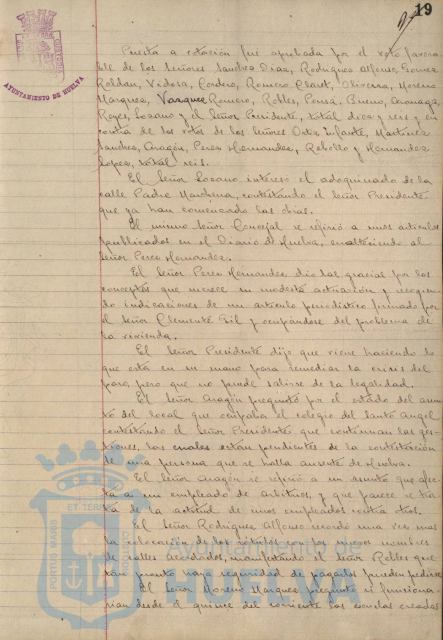 19
AYUNTAMIENTO DE HUELVA
Puesta a votación fué aprobada por el voto favora-
ble de los Señores Sanchez Diaz, Rodriguez Alfonso, Gomez
Roldan, Vidosa, Cordero, Romero Claret, Oliveira, Moreno
Marquez, Vazquez Romero, Robles, Ponsa, Bueno,
Reyes, Lozano y el Señor Presidente, total diez y seis y en
contra de los votos de los Señores Ortiz Infante, Martinez
Sanchez, Aragón, Perez Hernandez, Rebollo y Hernandez
Lopez, total seis.
El Señor Lozano interesó el adoquinado de la
calle Padre Marchena, contestando el Señor Presidente
que ya han comenzado las obras.
El mismo Señor Concejal se refirió a unos articulos
publicados en el Diario de Huelva, enalteciendo al
Señor Perez Hernandez.
El Señor Perez Hernandez dió las gracias por los
conceptos que merece su modesta actuación y recogien-
do indicaciones de un articulo periodistico firmado por
el Señor Clemente Gil y ocupándose del problema de
la vivienda.
El Señor Presidente dijo que viene haciendo lo
que está en su mano para remediar la crisis del
paro, pero que no puede salirse de la legalidad.
El Señor Aragón preguntó por el estado del asun-
to del local que ocupaba el colegio del Santo Angel
contestando el Señor Presidente que continuan las ges-
tiones, las cuales están pendientes de la contestación
de una persona que se halla ausente de Huelva.
El Señor Aragón se refirió a un asunto que afec-
ta a un empleado de arbitrios, y que parece se tra-
ta de la actitud de unos empleados contra otros.
El Señor Rodriguez Alfonso recordó una vez mas
la colocación de los rótulos con los nuevos nombres
de calles acordados, manifestando el Señor Robles que
tan pronto haya seguridad de pagarlos pueden pedirse
El Señor Moreno Marquez preguntó si funciona-
rían desde el quince del corriente las escuelas creadas
PORTUS MARIS ET TERRAE
Ayuntamiento de
HUELVA